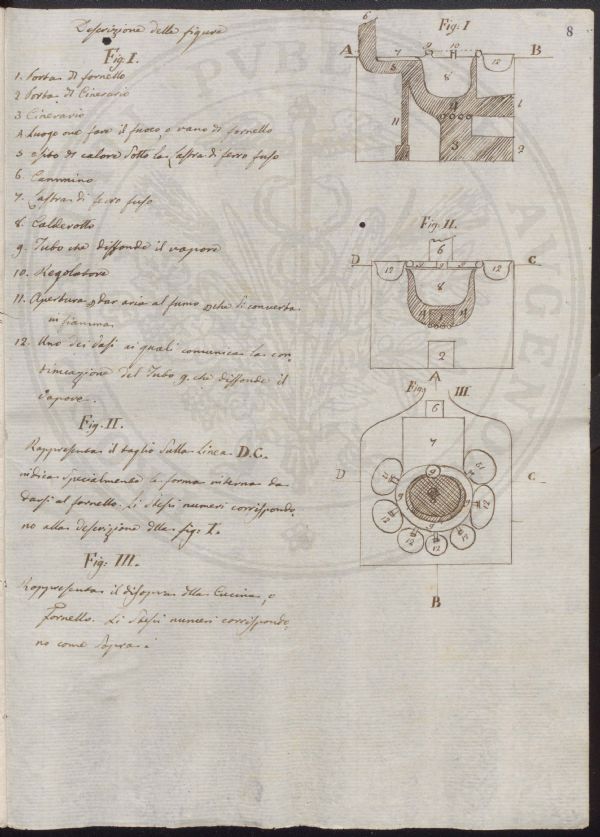 8
Descrizione delle figure
Fig: I.
1. Porta di fornello
2 Porta di Cinerario
3 Cinerario
4 Luogo ove fare il fuoco, o vano di fornello
5 esito di calore sotto la lastra di ferro fuso
6 Cammino
7. Lastra di ferro fuso
8. Calderotto
9. Tubo che diffonde il vapore
10. Regolatore
11. Apertura p dar aria al fumo pche si converta
in fiamma
12. Uno dei vasi ai quali comunica la con
tinuazione del Tubo 9. che diffonde il
Vapore.
Fig. II.
Rappresenta il taglio sulla linea D.C.
indica specialmente la forma interna da
darsi al fornello. Li stessi numeri corrispondo,
no alla descrizione della fig: I.
Fig: III.
Rappresenta il disopra della Cucina, o
Fornello. Li stessi numeri corrispondo,
no come sopra.
Fig: I
6
A 7 9 10 B
5 8 12
4 1
11
3 2
Fig. II.
6
D C
12 9 9 12
8
4 4
2
A
Fig: III.
6
7
D C
12 9 12
9 9
12 12
9
12 12 12
B
PVBLI
AVGENDO